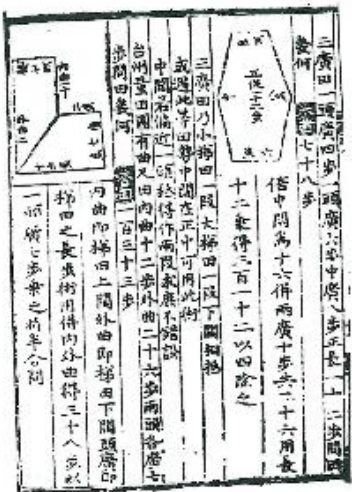 三廣田一頭廣四步一頭廣六步中廣八步正長一十二步問田
幾何 答曰七十八步
正長十二步
倍中闊為十六併兩廣十步共二十六用長
十二乘得三百一十二以四除之
三廣田乃小梯田一段大梯田一段下闊相挨
或遇此等田勢中闊在正中可用此術
中闊若偏一頭須作兩段求庶不錯誤
台州量田圖有曲尺田內曲十二步外曲二十六步兩頭各廣七
步問田幾何 答曰一百三十三步
內曲即梯田上闊外曲即梯田下闊頭廣即
梯田之長步術用併內外曲得三十八步以
一頭廣七步乘之折半合問